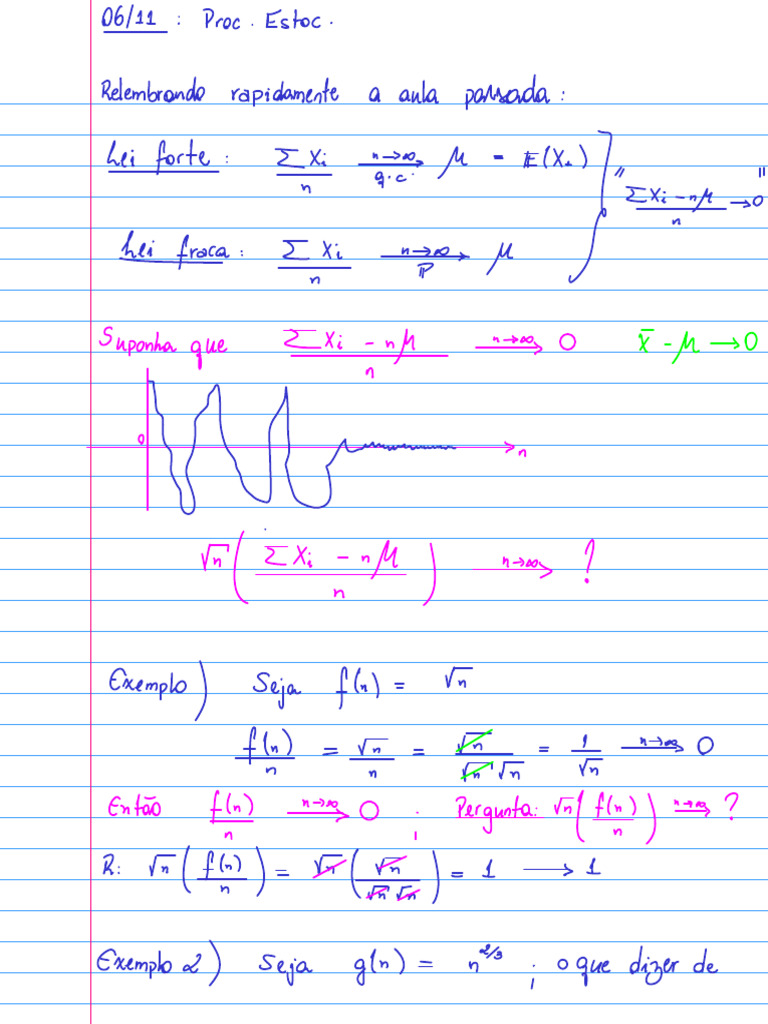 06/11 : Proc. Estoc.
Relembrando rapidamente a aula passada:
Lei forte: ΣXi/n —n→∞, q.c.→ μ = E(X1) } " (ΣXi - nμ)/n → 0 "
Lei fraca: ΣXi/n —n→∞, P→ μ
Suponha que (ΣXi - nμ)/n —n→∞→ 0 X̄ - μ → 0
0 n
√n ( (ΣXi - nμ)/n ) —n→∞→ ?
Exemplo) Seja f(n) = √n
f(n)/n = √n/n = √n/(√n √n) = 1/√n —n→∞→ 0
Então f(n)/n —n→∞→ 0 ; Pergunta: √n ( f(n)/n ) —n→∞→ ?
R: √n ( f(n)/n ) = √n ( √n/(√n √n) ) = 1 → 1
Exemplo 2) Seja g(n) = n^(2/3) ; o que dizer de